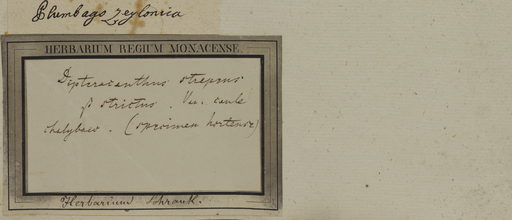 Plumbago zeylonica
HERBARIUM REGIUM MONACENSE.
Dipteracanthus strepens
β strictus. Var. caule
chalybaeo. (specimen hortense)
Herbarium Schrank.